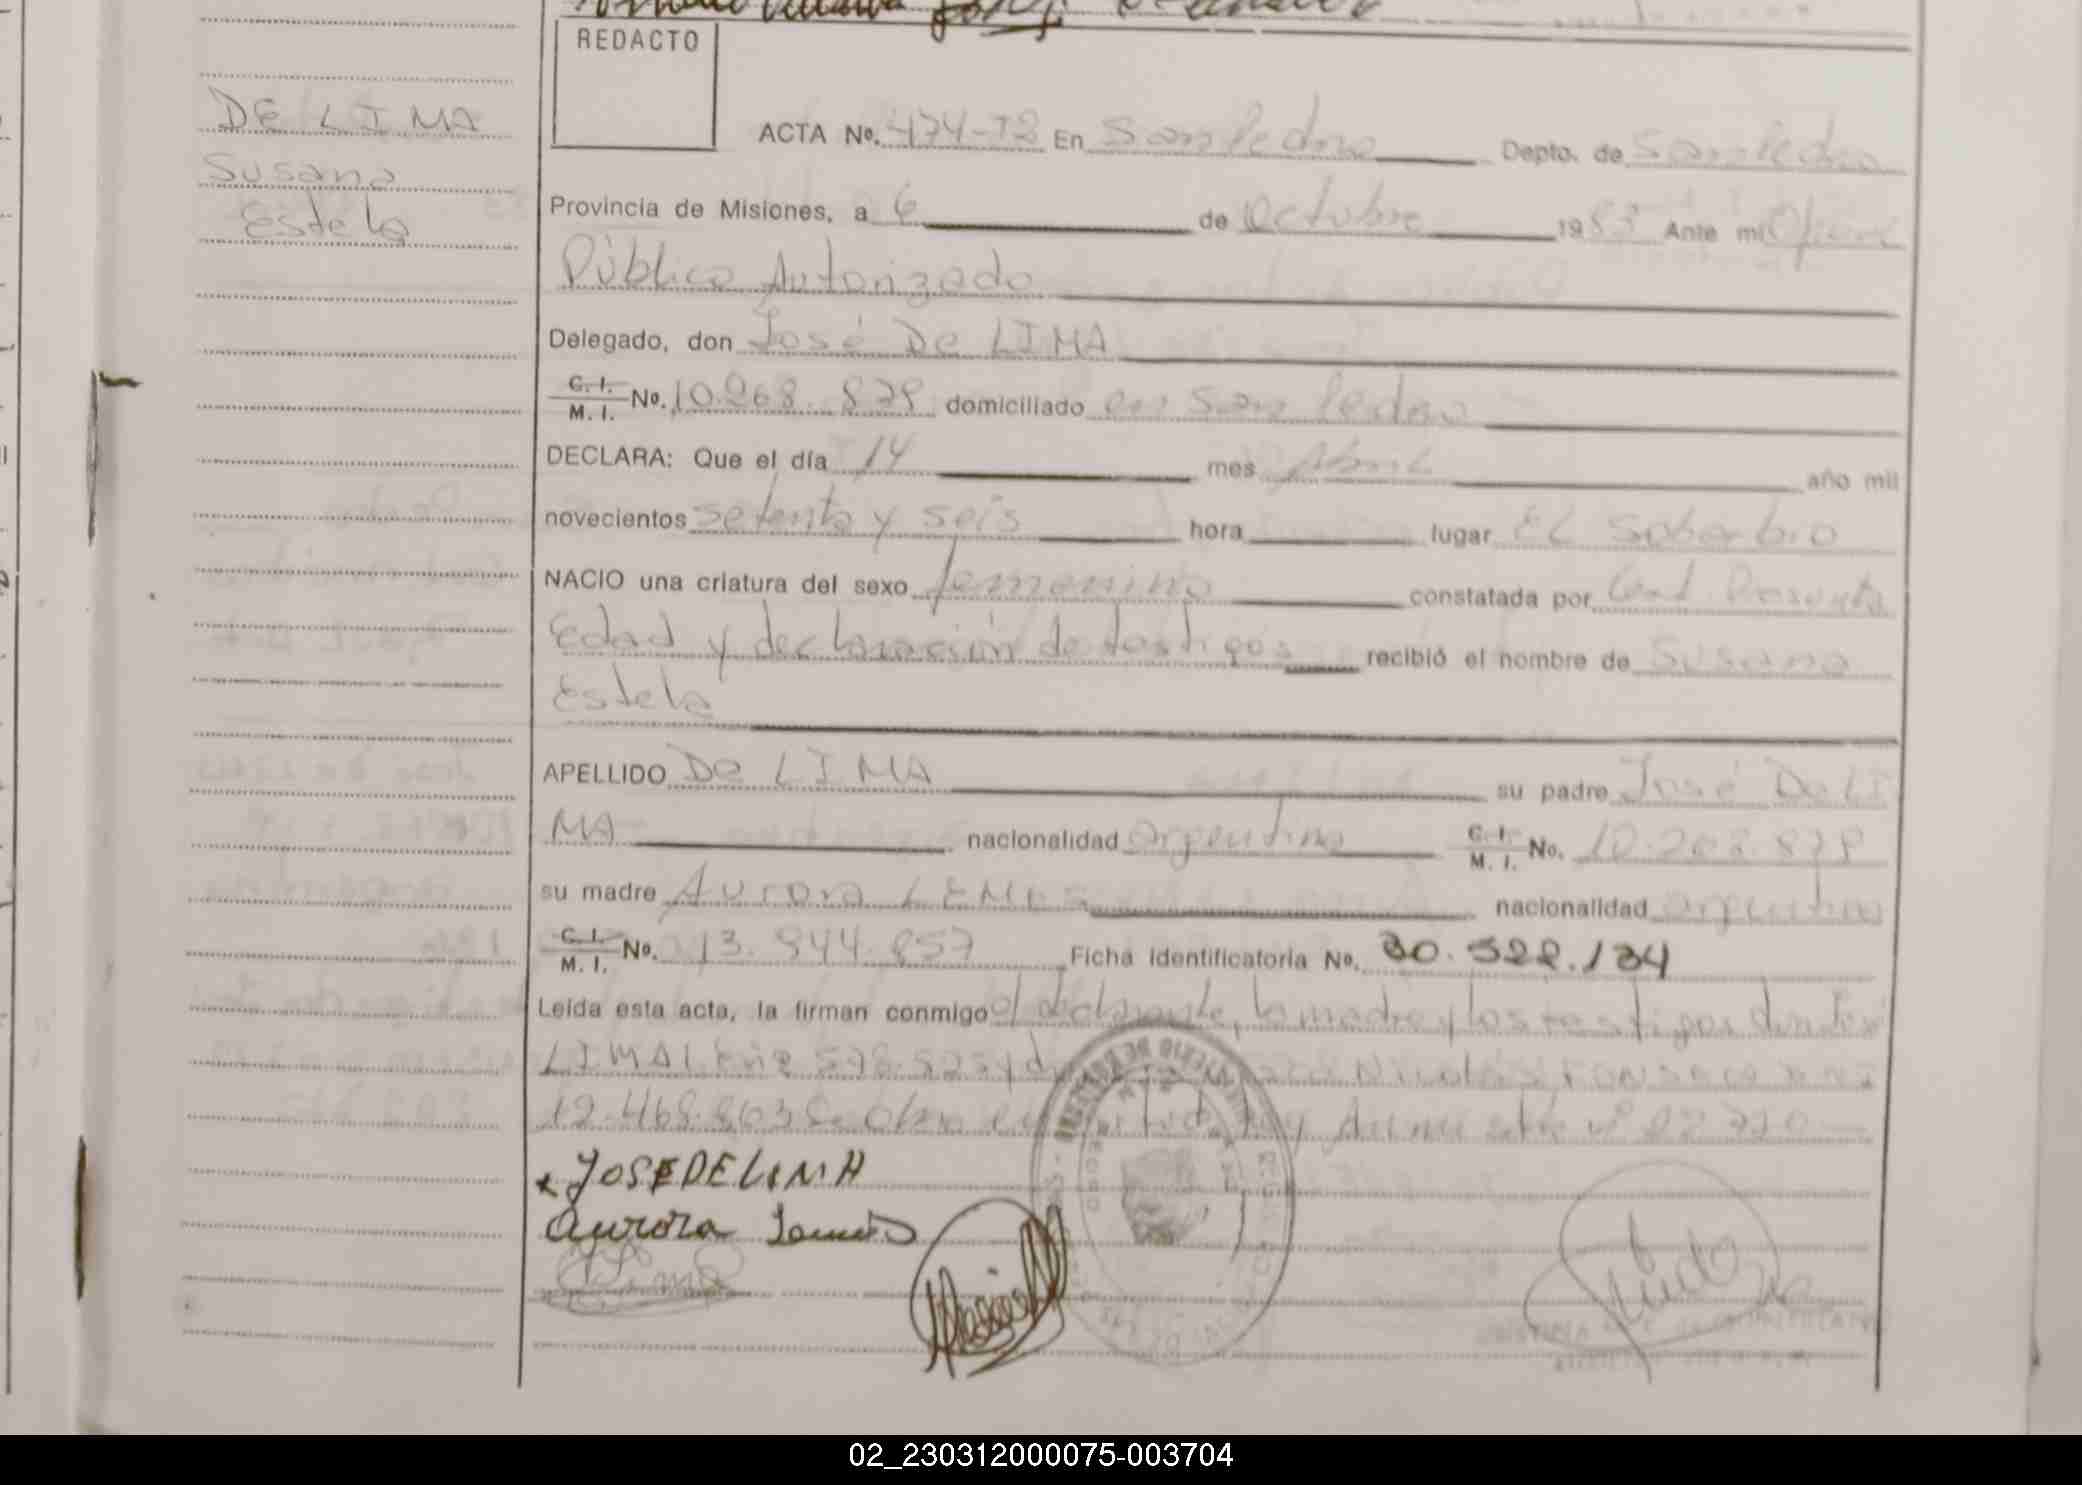 REDACTO
DE LIMA
Susana
Estela
ACTA Nº. 474-T2 En San Pedro Depto. de San Pedro
Provincia de Misiones, a 6 de Octubre 1983 Ante mi
Público Autorizado
Delegado, don José De LIMA
C. I. M. I. Nº. 10.268.878 domiciliado en San Pedro
DECLARA: Que el día 14 mes Abril año mil
novecientos setenta y seis hora lugar El Soberbio
NACIO una criatura del sexo femenino constatada por Cert. Presunta
Edad y declaración de testigos recibió el nombre de Susana
Estela
APELLIDO De LIMA su padre José De LI
MA nacionalidad argentina C. I. M. I. No.
su madre Aurora LEMES nacionalidad argentina
C. I. M. I. Nº. 13.844.857 Ficha Identificatoria Nº. 30.522.134
Leída esta acta, la firman conmigo el declarante, la madre y los testigos
LIMA
JOSE DE LIMA
Aurora Lemes
02_230312000075-003704